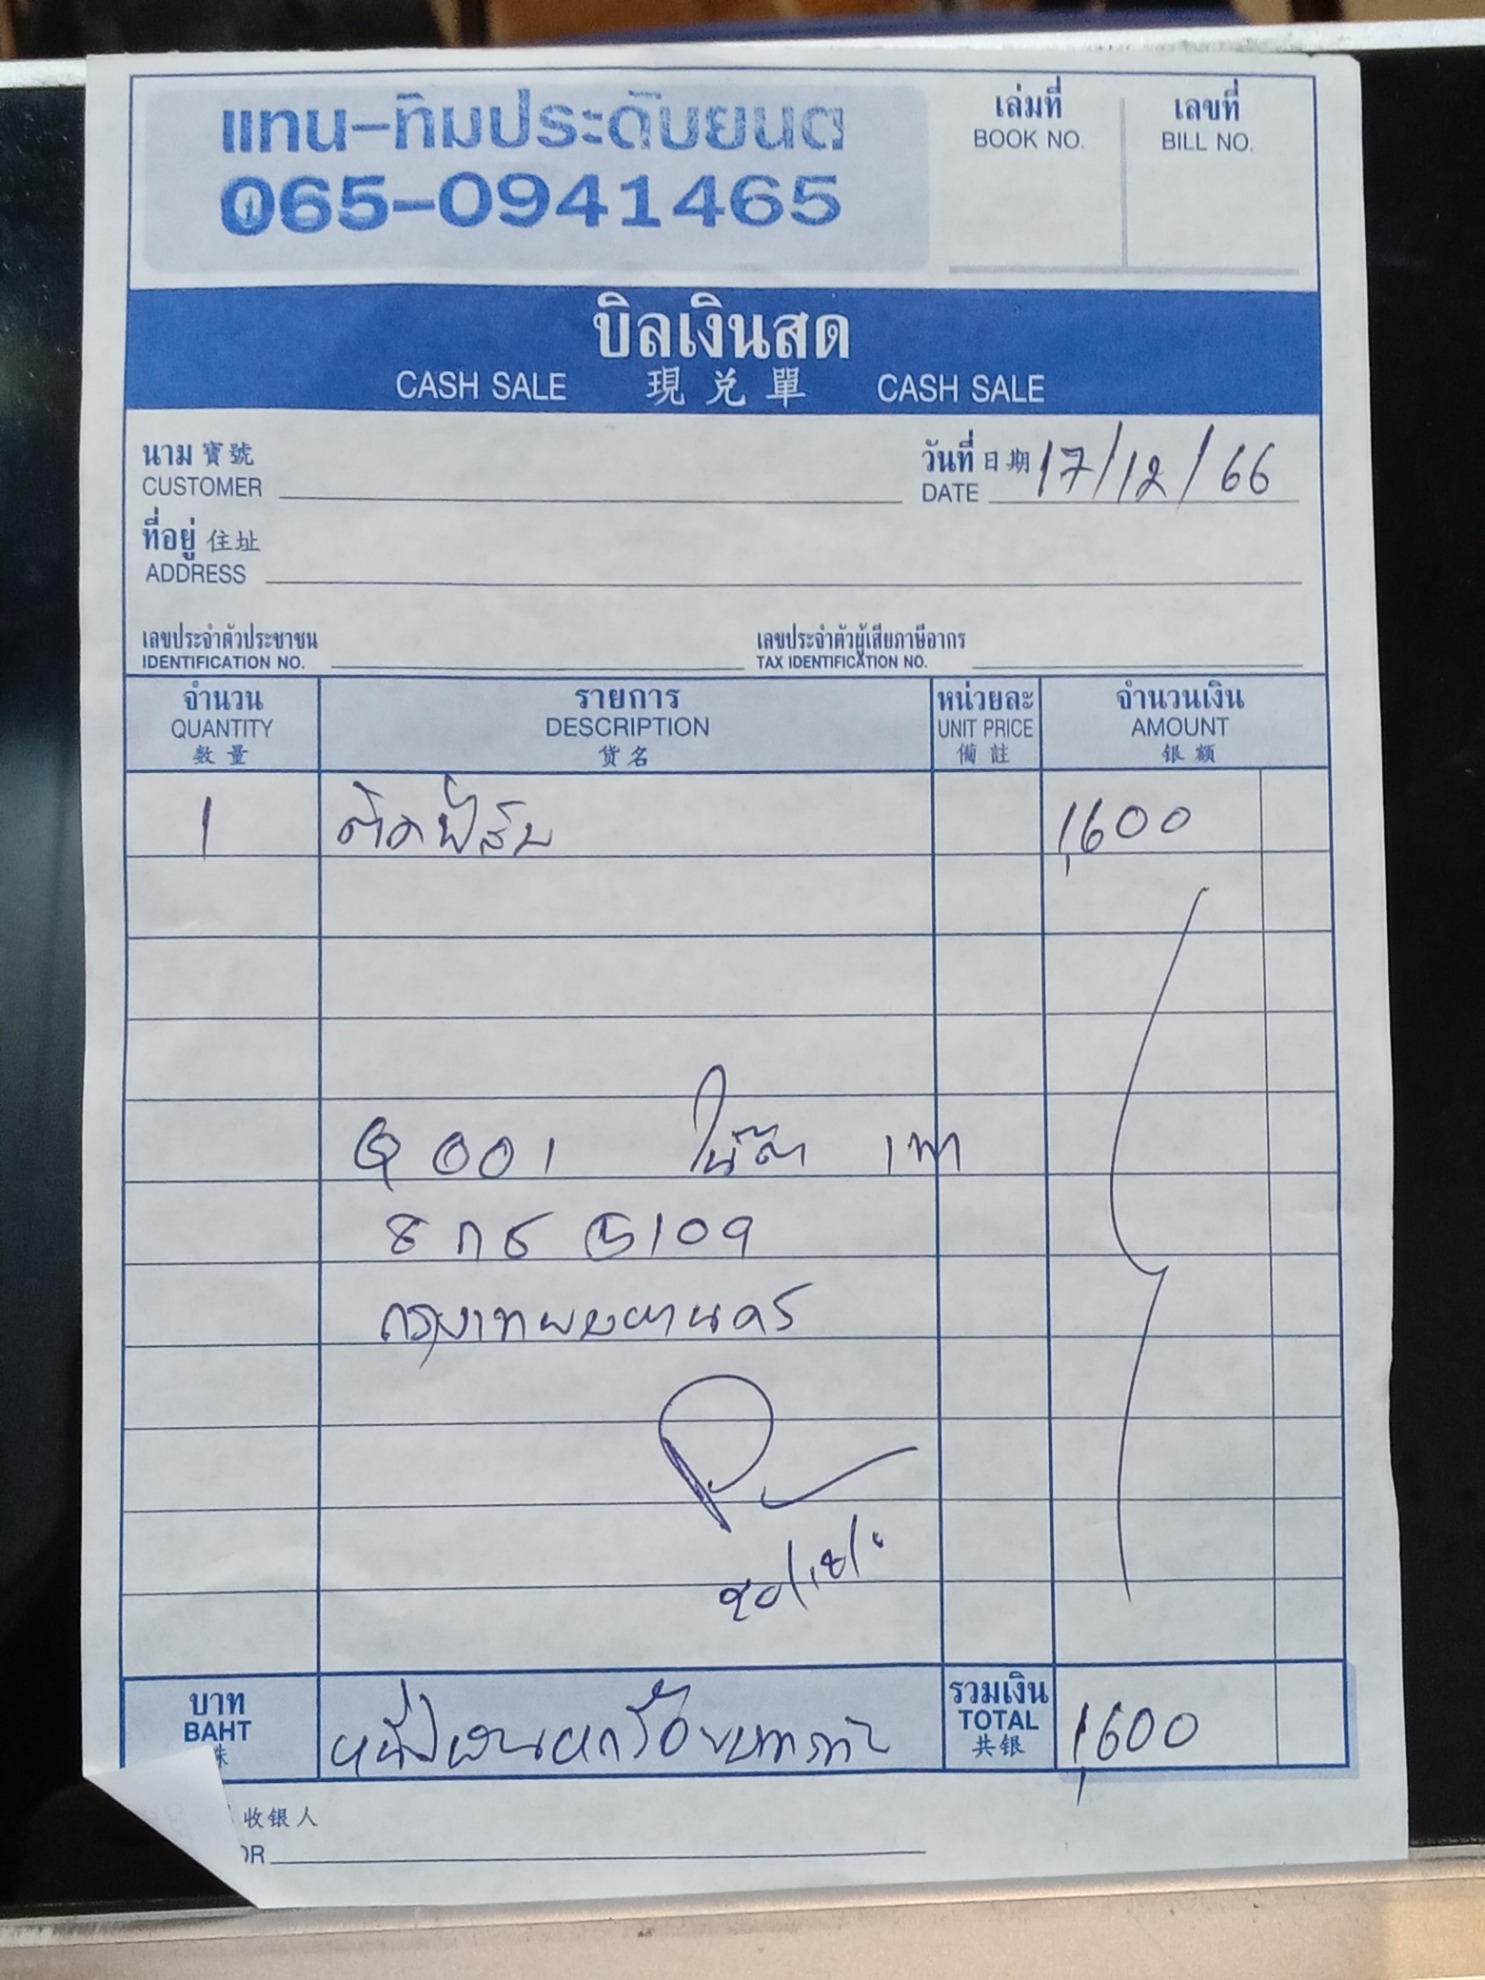 แทน-ทิมประดับยนต์
065-0941465
เล่มที่
BOOK NO.
เลขที่
BILL NO.
บิลเงินสด
CASH SALE 現兑單 CASH SALE
นาม 寶號
CUSTOMER
วันที่ 日期 17/12/66
DATE
ที่อยู่ 住址
ADDRESS
เลขประจำตัวประชาชน
IDENTIFICATION NO.
เลขประจำตัวผู้เสียภาษีอากร
TAX IDENTIFICATION NO.
จำนวน รายการ หน่วยละ จำนวนเงิน
QUANTITY DESCRIPTION UNIT PRICE AMOUNT
数量 货名 備註 银额
1 ติดฟิล์ม 1,600
Q001
8 กธ 5109
กรุงเทพมหานคร
20/12/
บาท หนึ่งพันหกร้อยบาทถ้วน รวมเงิน 1,600
BAHT TOTAL
銖 共银
收银人
OR